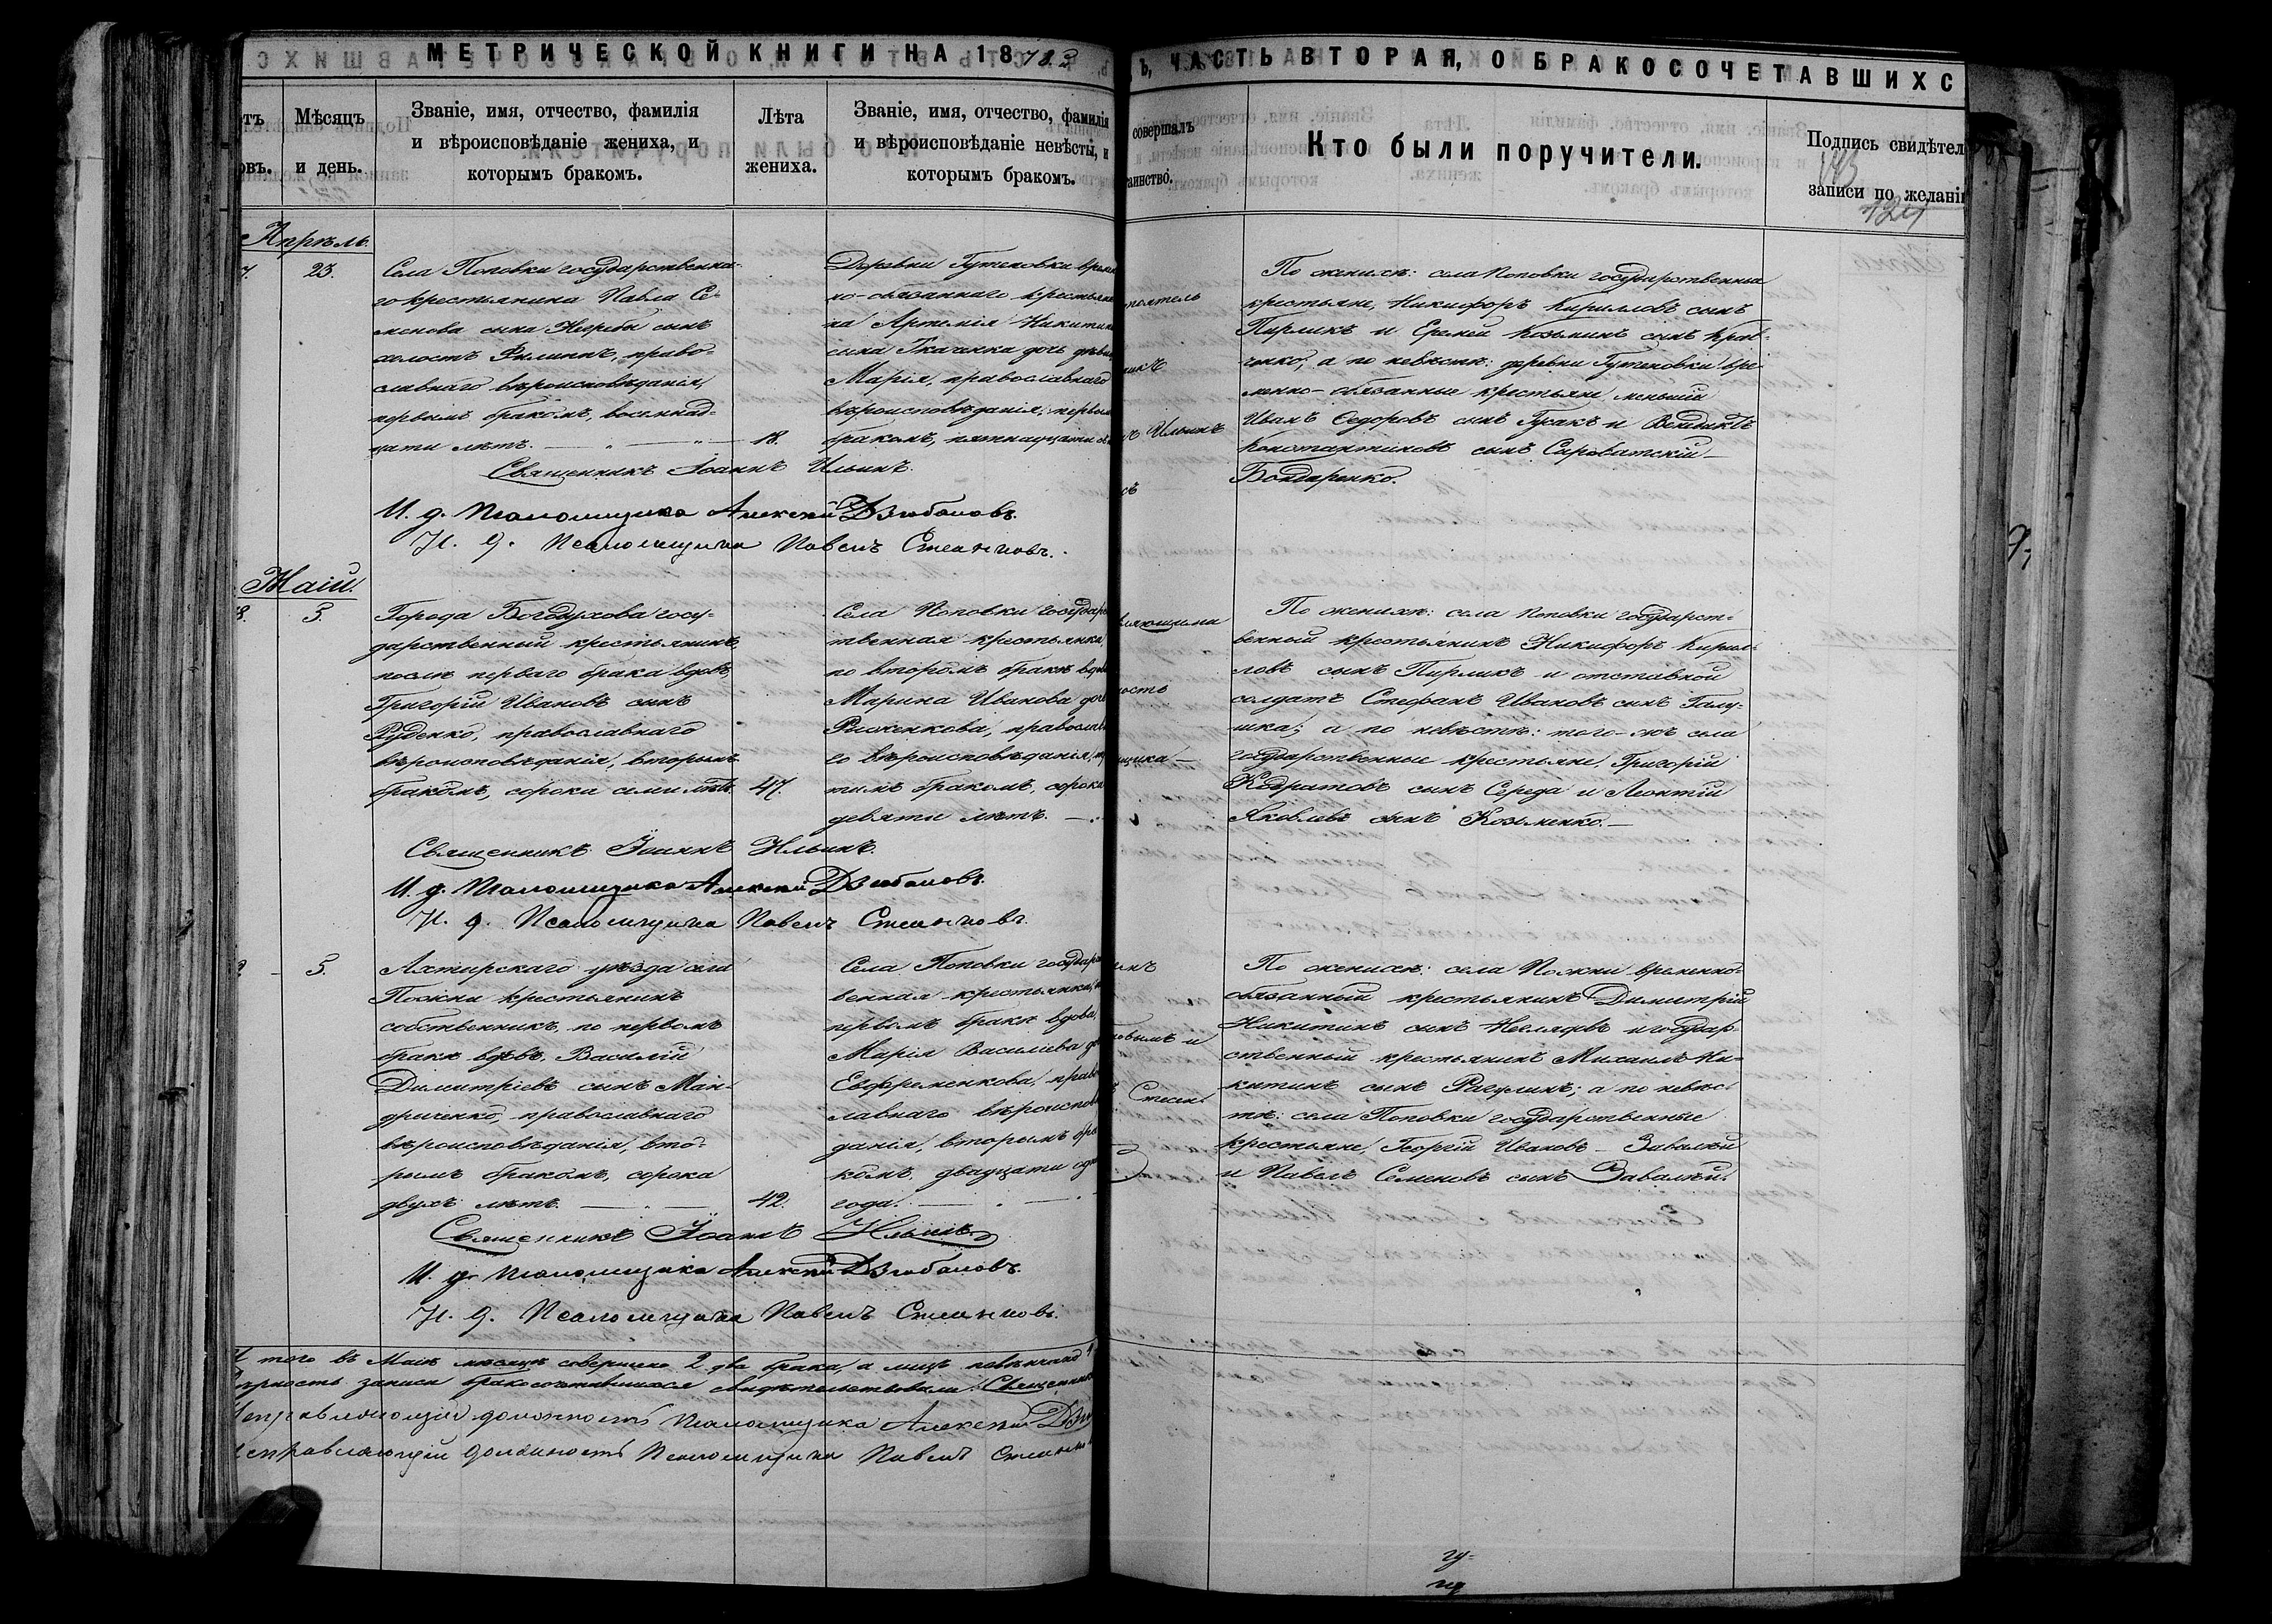 МЕТРИЧЕСКОЙ КНИГИ НА 1873
Ъ, ЧАСТЬ ВТОРАЯ, О БРАКОСОЧЕТАВШИХС
Мѣсяцъ
и день.
Званіе, имя, отчество, фамилія
и вѣроисповѣданіе жениха, и
которымъ бракомъ.
Лѣта
жениха.
Званіе, имя, отчество, фамилія
и вѣроисповѣданіе невѣсты, и
которымъ бракомъ.
совершалъ
таинство.
Кто были поручители.
Подпись свидѣтел
записи по желанію
Апрѣль.
23.
Села Поповки государственна-
го крестьянина Павла Се-
менова сына сынъ
холостъ Филиппъ, право-
славнаго вѣроисповѣданія,
первымъ бракомъ, восемнад-
цати лѣтъ.
18.
Деревни Гутековки времен
но-обязаннаго крестьяни
на Артемія Никитина
сына Ткаченка дочь дѣвица
Марія, православнаго
вѣроисповѣданія, первым
бракомъ, пятнадцати
Ильинъ
По женихѣ: села Поповки государственные
крестьяне, Никифоръ Кирилловъ сынъ
Пирликъ и Еремей Козьминъ сынъ Крав-
ченко, а по невѣстѣ: деревни Гутековки вре-
менно-обязанные крестьяне меньшій
Иванъ Ѳедоровъ сынъ Гусакъ и
Константиновъ сынъ Сыроватскій
Бондаренко.
Священникъ Іоаннъ Ильинъ.
И. д. Псаломщика Алексѣй Дзюбановъ.
И. д. Псаломщика Павелъ
Маій.
3.
Города Богодухова госу-
дарственный крестьянинъ,
послѣ перваго брака вдовъ,
Григорій Ивановъ сынъ
Руденко, православнаго
вѣроисповѣданія, вторымъ
бракомъ, сорока семи лѣтъ.
47.
Села Поповки государс
твенная крестьянка,
по второмъ бракѣ вдова
Марина Иванова дочь
Рыженкова, православна
го вѣроисповѣданія, тре
тимъ бракомъ, сорока
девяти лѣтъ.
По женихѣ: села Поповки государст-
венный крестьянинъ Никифоръ Кирил-
ловъ сынъ Пирликъ и отставной
солдатъ Стефанъ Ивановъ сынъ Галу-
шка; а по невѣстѣ: того-же села
государственные крестьяне, Григорій
Кодратовъ сынъ Середа и Леонтій
Яковлевъ сынъ Козьменко.
Священникъ Іоаннъ Ильинъ.
И. д. Псаломщика Алексѣй Дзюбановъ.
И. д. Псаломщика Павелъ
5.
Ахтырскаго уѣзда села
Пожни крестьянинъ
собственникъ, по первомъ
бракѣ вдовъ, Василій
Димитріевъ сынъ Ман-
дриченко, православнаго
вѣроисповѣданія, вто-
рымъ бракомъ, сорока
двухъ лѣтъ.
42.
Села Поповки государст
венная крестьянка, по
первомъ бракѣ вдова,
Марія Васильева дочь
Евфременкова, правос
лавнаго вѣроисповѣ
данія, вторымъ бра
комъ, двадцати одного
года.
По женихѣ: села Пожни временно-
обязанный крестьянинъ Димитрій
Никитинъ сынъ и государ-
ственный крестьянинъ Михаилъ Ни-
китинъ сынъ Рагулинъ; а по невѣс-
тѣ: села Поповки государственные
крестьяне, Георгій Ивановъ Завалѣй
и Павелъ Семеновъ сынъ Завалѣй.
Священникъ Іоаннъ Ильинъ
И. д. Псаломщика Алексѣй Дзюбановъ.
И. д. Псаломщика Павелъ
Итого въ Маѣ мѣсяцѣ совершено 2 два брака, а лицъ повѣнчано 4
вѣрность записи бракосочетавшихся свидѣтельствовали: Священникъ
Исправляющій должность Псаломщика Алексѣй
Исправляющій должность Псаломщика Павелъ